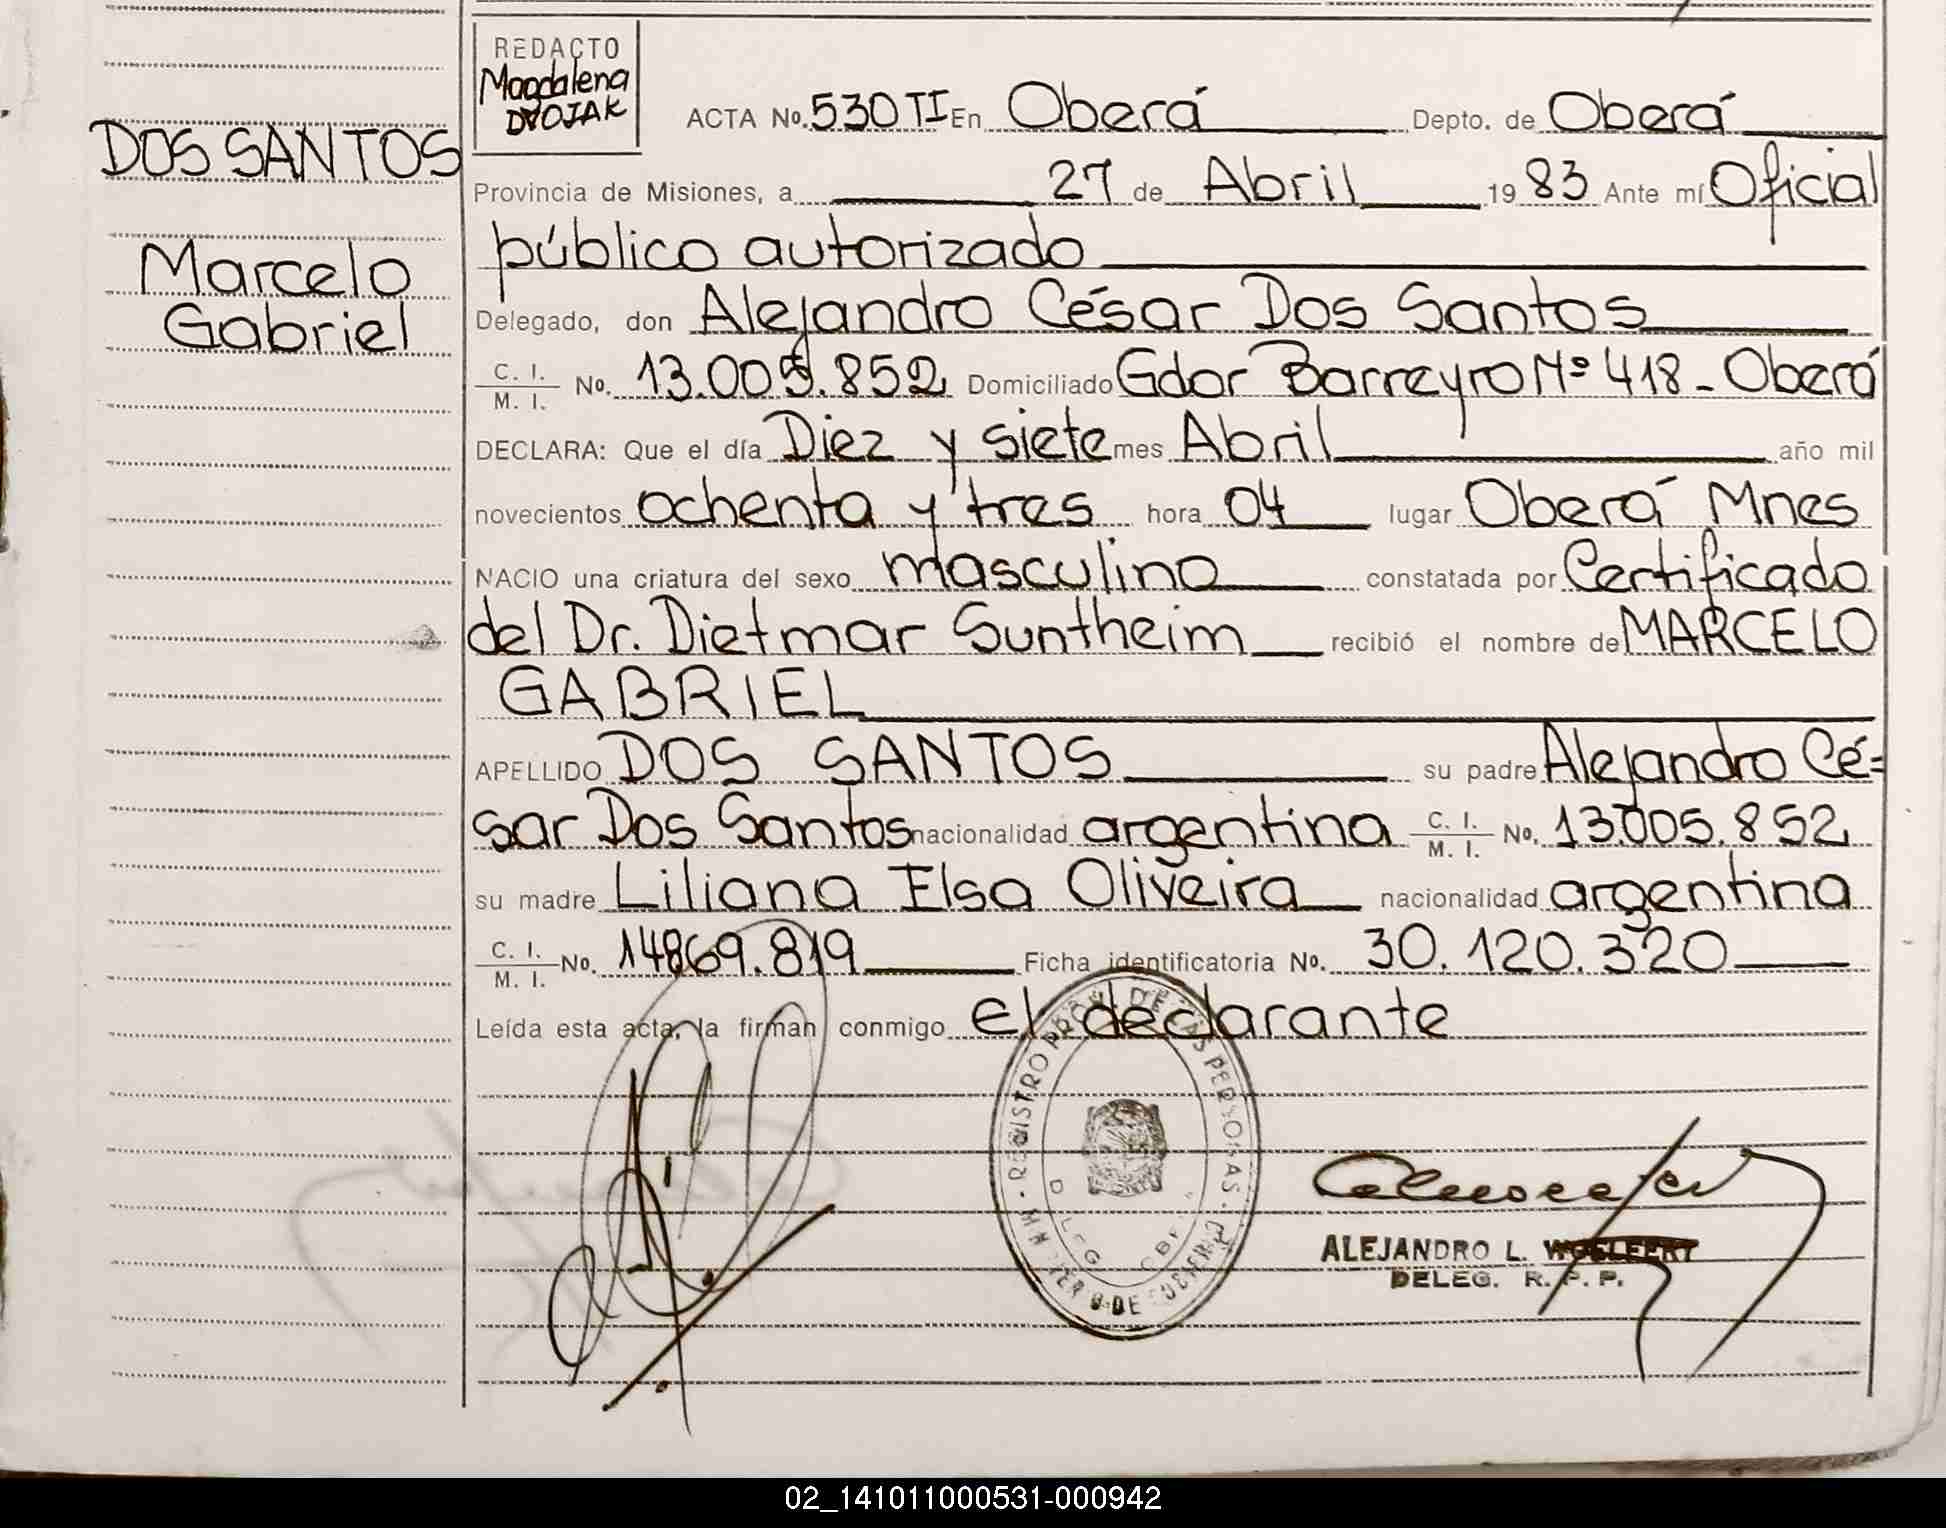 REDACTO
Magdalena
DVOJAK
DOS SANTOS
Marcelo
Gabriel
ACTA No. 530 TI En Oberá Depto. de Oberá
Provincia de Misiones, a 27 de Abril 1983 Ante mí Oficial
público autorizado
Delegado, don Alejandro César Dos Santos
C. I.
M. I. No. 13.005.852 Domiciliado Gdor Barreyro Nº 418 - Oberá
DECLARA: Que el día Diez y siete mes Abril año mil
novecientos ochenta y tres hora 04 lugar Oberá Mnes
NACIO una criatura del sexo masculino constatada por Certificado
del Dr. Dietmar Suntheim recibió el nombre de MARCELO
GABRIEL
APELLIDO DOS SANTOS su padre Alejandro Cé=
sar Dos Santos nacionalidad argentina C. I. M. I. No. 13.005.852
su madre Liliana Elsa Oliveira nacionalidad argentina
C. I.
M. I. No. 14869.819 Ficha identificatoria No. 30.120.320
Leída esta acta, la firman conmigo el declarante
REGISTRO PROV. DE LAS PERSONAS
ALEJANDRO L. WOELFERT
DELEG. R. P. P.
02_141011000531-000942